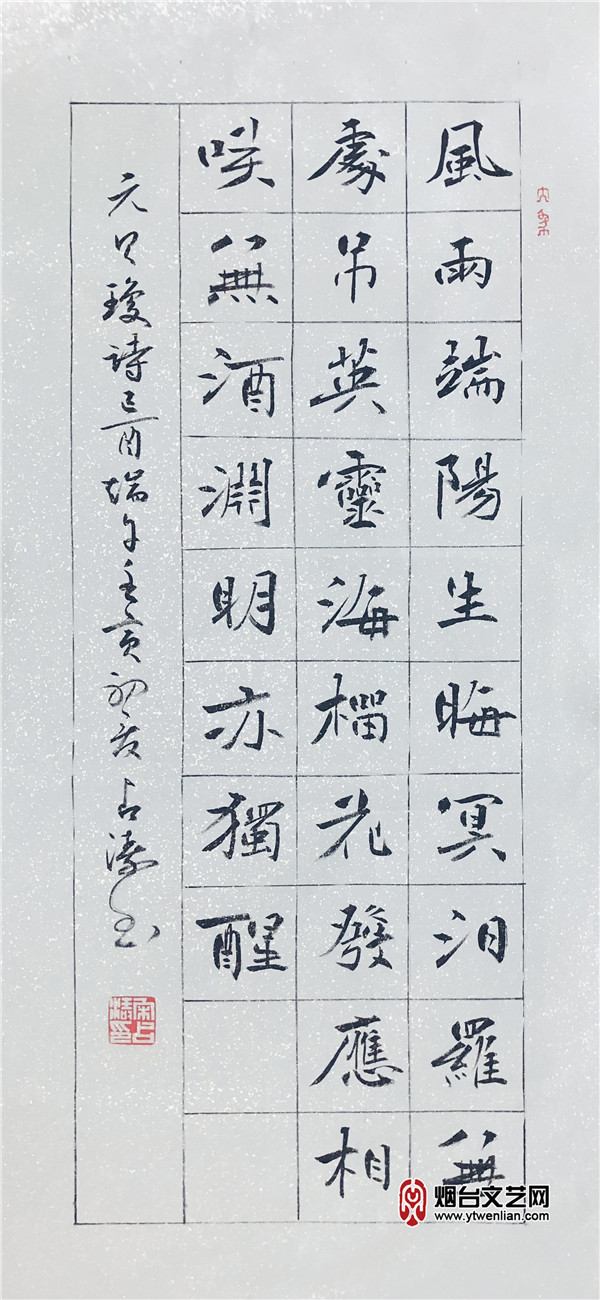 風雨端陽生晦冥汨羅無
處吊英靈海榴花發應相
咲無酒淵明亦獨醒
元貝瓊詩己酉端午壬寅初夏占濤书
烟台文艺网
www.ytwenlian.com